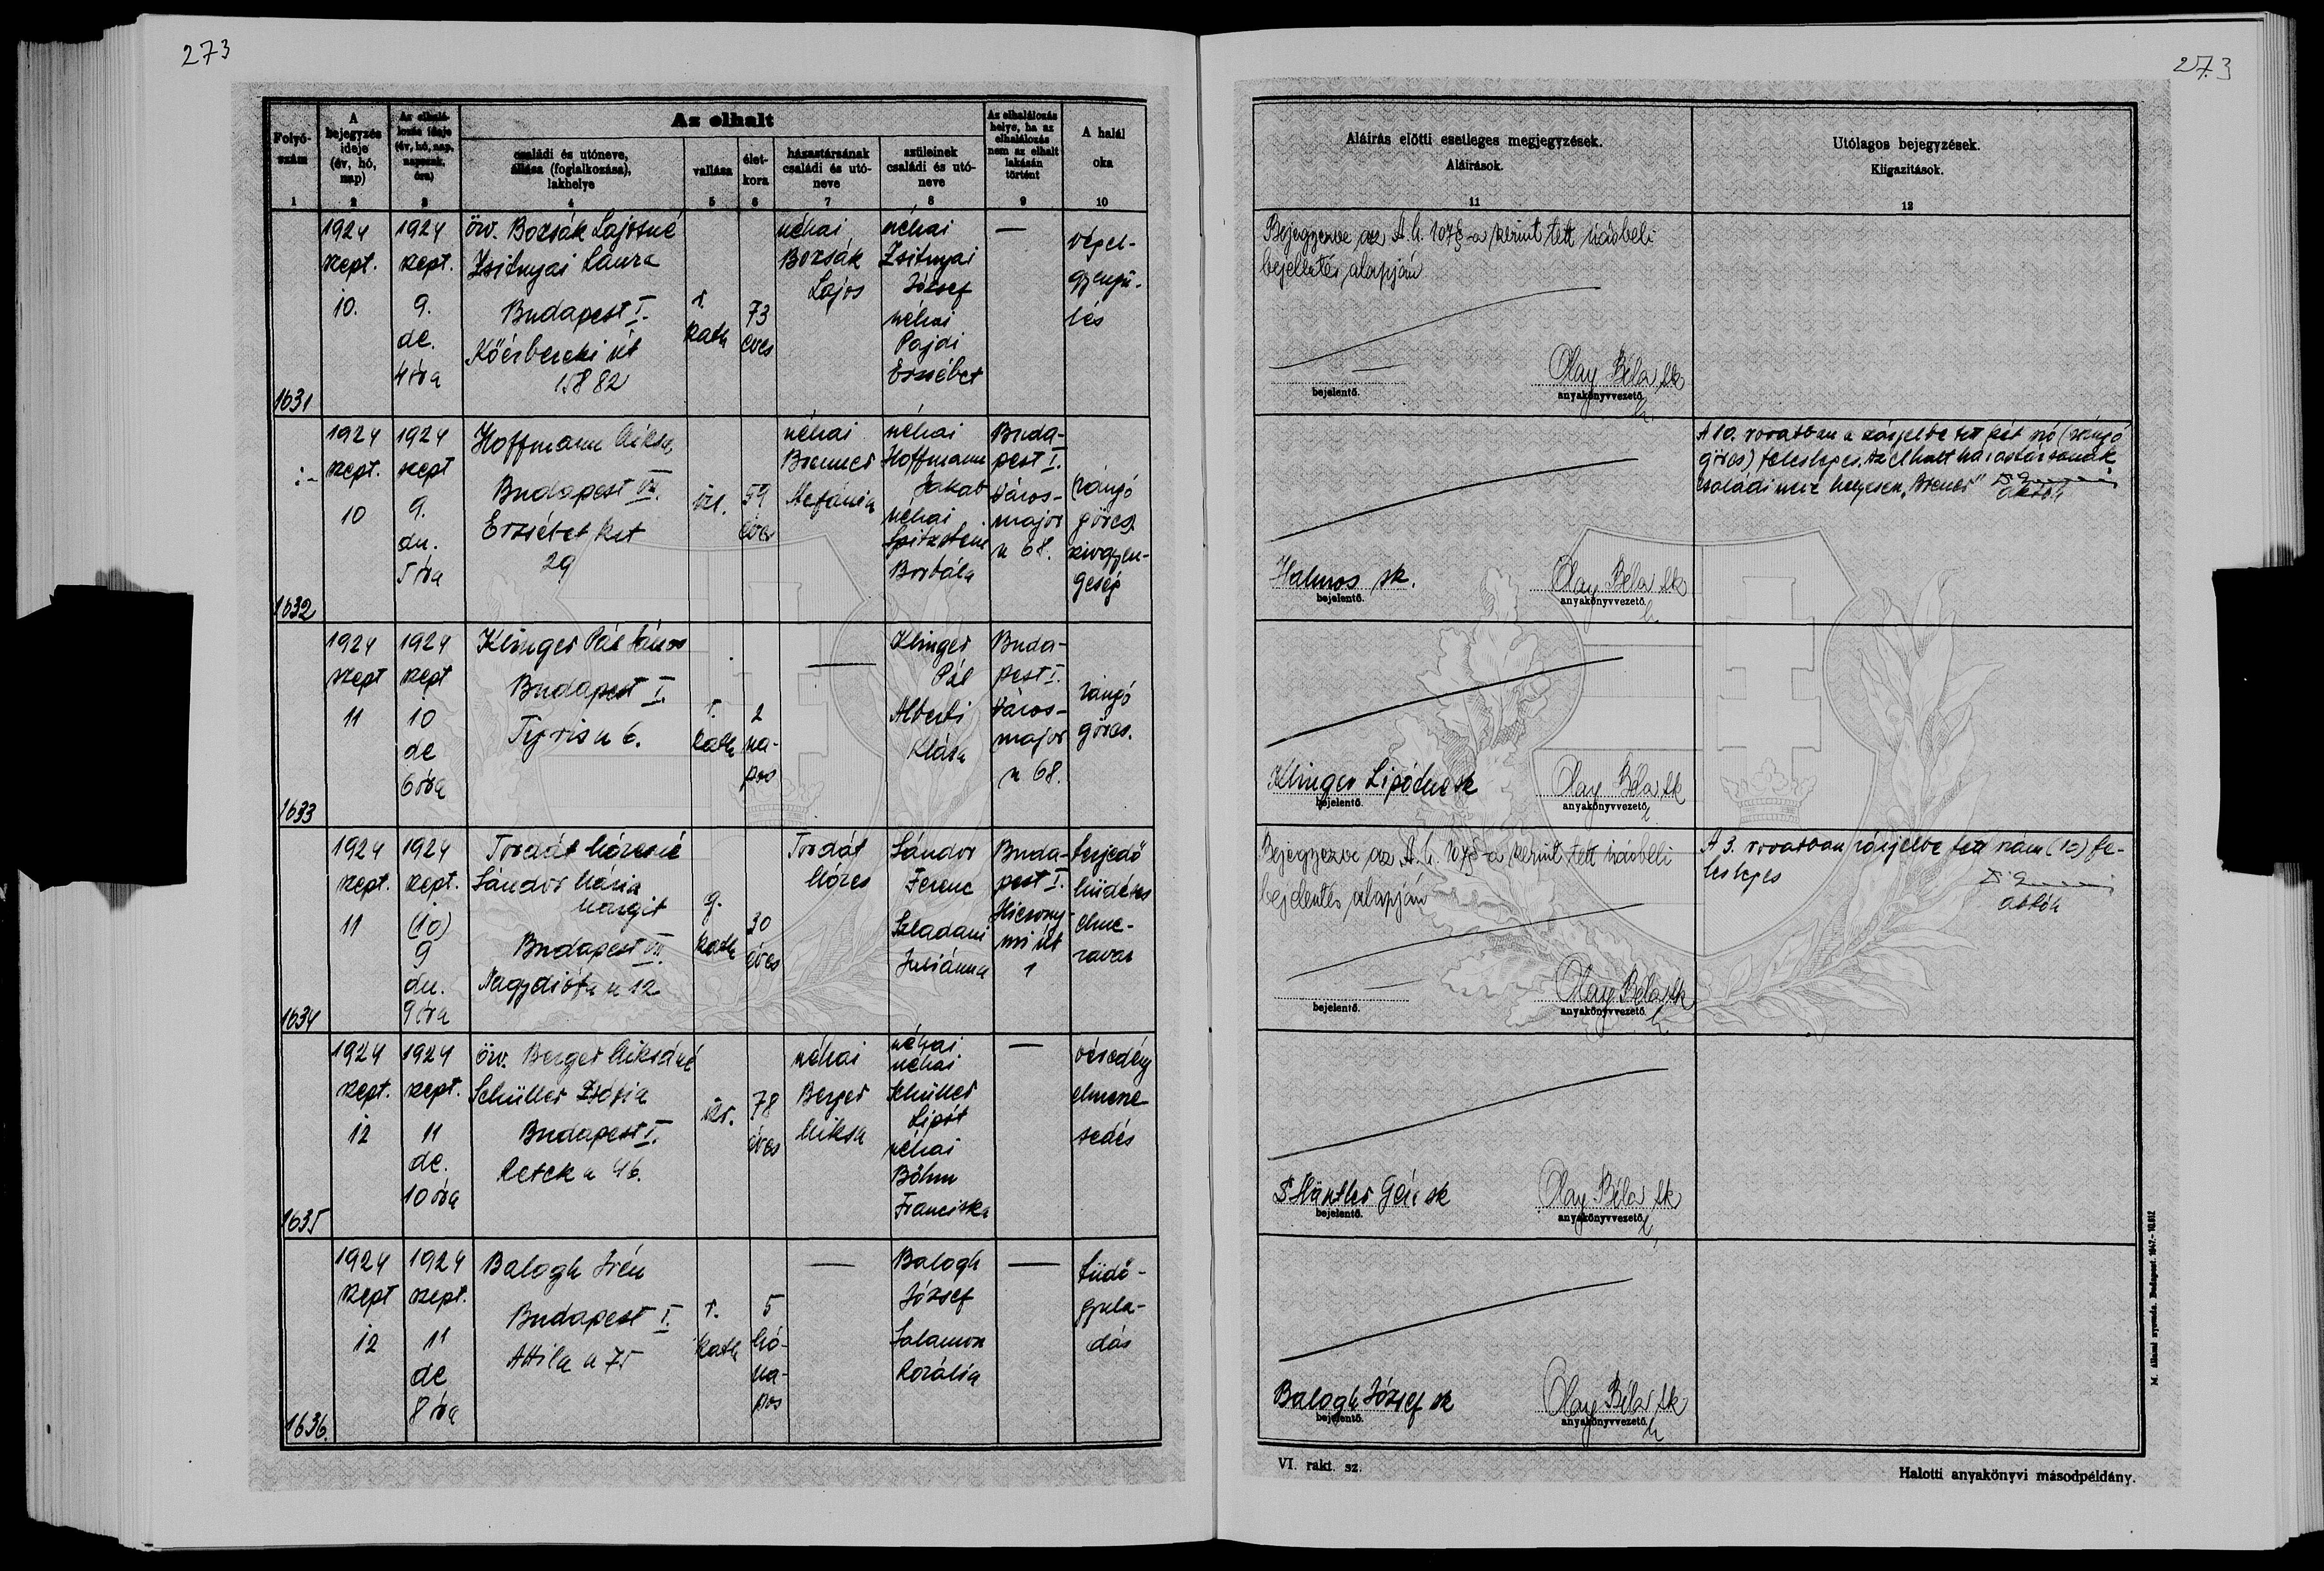 273
273
Folyó-
szám
A
bejegyzés
ideje
(év, hó,
nap)
Az elhalá-
lozás ideje
(év, hó, nap,
napszak,
óra)
Az elhalt
családi és utóneve,
állása (foglalkozása),
lakhelye
vallása
élet-
kora
házastársának
családi és utó-
neve
szüleinek
családi és utó-
neve
Az elhalálozás
helye, ha az
elhalálozás
nem az elhalt
lakásán
történt
A halál
oka
1
2
3
4
5
6
7
8
9
10
Aláírás előtti esetleges megjegyzések.
Aláírások.
11
Utólagos bejegyzések.
Kiigazítások.
12
1631
1924
szept.
10.
1924
szept.
9.
de.
4 óra
özv. Bozsák Lajosné
Zsitnyai Laura
Budapest I.
Kőérbereki út
15882
r.
kath
73
éves
néhai
Bozsák
Lajos
néhai
Zsitnyai
József
néhai
Pajdi
Erzsébet
—
végel-
gyengü-
lés
Bejegyezve az A. U. 107§-a szerint tett írásbeli
bejelentés alapján
bejelentő.
Olay Béla sk
anyakönyvvezető
h.
1632
1924
szept.
10
1924
szept
9.
du.
5 óra
Hoffmann Miksa,
Budapest VII.
Erzsébet krt
29
izr.
59
éves
néhai
Brenner
Stefánia
néhai
Hoffmann
Jakab
néhai
Spitzstein
Borbála
Buda-
pest I.
Város-
major
u 68.
(rángó
görcs)
szivgyen-
geség
Halmos sk.
bejelentő.
Olay Béla sk
anyakönyvvezető
h.
A 10. rovatban a zárjelbe tett két szó (rángó
görcs) felesleges. Az elhalt házastársának
családi neve helyesen „Brener"
1633
1924
szept
11
1924
szept
10
de
6 óra
Klinger Pál János
Budapest I.
Tigris u 6.
r.
kath
2
na-
pos
—
Klinger
Pál
Alberti
Klára
Buda-
pest I.
Város-
major
u 68.
rángó
görcs.
Klinger Lipótné sk
bejelentő.
Olay Béla sk
anyakönyvvezető
h.
1634
1924
szept.
11
1924
szept.
(10)
9
du.
9 óra
Tordát Mózesné
Sándor Mária
Margit
Budapest VII.
Nagydiófa u 12
g.
kath
30
éves
Tordát
Mózes
Sándor
Ferenc
Szladani
Juliánna
Buda-
pest I.
Hierony-
mi út
1
terjedő
hüdéses
elme-
zavar
Bejegyezve az A. U. 107§-a szerint tett írásbeli
bejelentés alapján
bejelentő.
Olay Béla sk
anyakönyvvezető
h.
A 3. rovatban zárjelbe tett szám (10) fe-
lesleges
1635
1924
szept.
12
1924
szept.
11
de.
10 óra
özv. Berger Miksáné
Schüller Zsófia
Budapest I.
Retek u 46.
izr.
78
éves
néhai
Berger
Miksa
néhai
néhai
Schüller
Lipót
néhai
Böhm
Franciska
—
vésedény
elmesze
sedés
bejelentő.
Olay Béla sk
anyakönyvvezető
h.
1636.
1924
szept
12
1924
szept.
11
de
8 óra
Balogh Irén
Budapest I.
Attila u 75
r.
kath
5
hó-
na-
pos
—
Balogh
József
Salamon
Rozália
—
tüdő-
gyula-
dás
Balogh József sk
bejelentő.
Olay Béla sk
anyakönyvvezető
h
VI. rakt. sz.
Halotti anyakönyvi másodpéldány.
M. Állami nyomda. Budapest. 1947.- 10.612